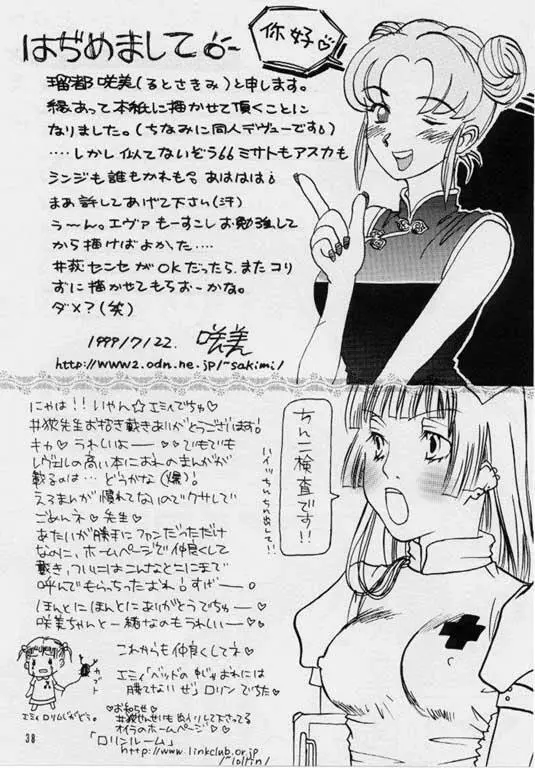 はぢめまして
你好
瑠都咲美(るとさきみ)と申します。
縁あって本紙に描かせて頂くことに
なりました。(ちなみに同人デヴューです)
‥‥しかし似てないぞう ミサトもアスカも
シンジも誰もかれも。あははは
まあ許してあげて下さい(汗)
う〜ん。エヴァもーすこしお勉強して
から描けばよかった‥‥
井荻センセがOKだったら、またコリ
ずに描かせてもらおーかな。
ダメ?(笑)
1999/7/22. 咲美
http://www2.odn.ne.jp/~sakimi/
にゃは!!いやん☆エミィでちゅ♡
ちんこ検査です!!
キャ♡うれしいよー♡♡でもでも
レヴェルの高い本におれのまんがが
載るのは…どうかな(爆)
えろまんが慣れてないのでクサしで
ごめんネ♡先生♡
あたいが勝手にファンだっただけ
なのに、ホームページで仲良くして
戴き、ついにはこんなとこにまで
呼んでもらっちったおれ!すげー。
ほんとにほんとにありがとうでちゅー♡
咲美ちゃんと一緒なのもうれしいー♡
これからも仲良くしてネ♡
エミィ「ベッドの
おれには
勝てないぜ」ロリンでちた♡
♡お知らせ♡
オイラのホームページ♡♡
「ロリンルーム」
http://www.linkclub.or.jp
/~lollin/
38